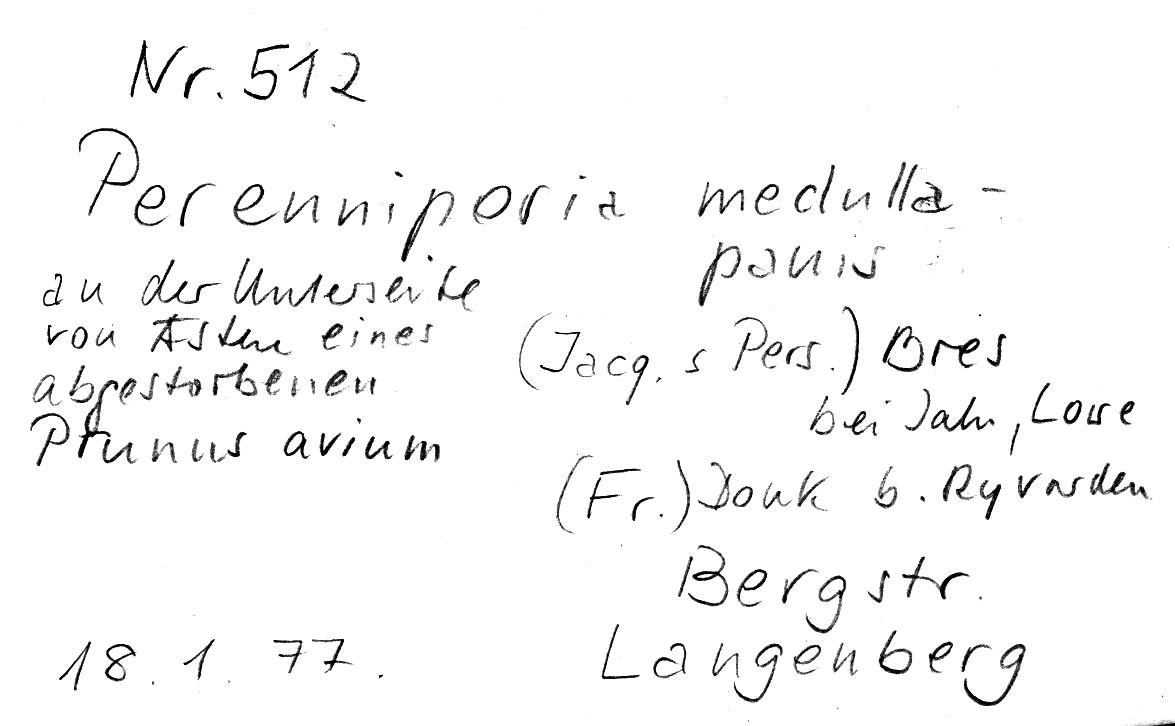 Nr. 512
Perenniporia medulla-
panis
an der Unterseite
von Ästen eines
abgestorbenen
Prunus avium
(Jacq. s Pers.) Bres
bei Jahn, Lowe
(Fr.) Donk b. Ryvarden
Bergstr.
Langenberg
18. 1. 77.